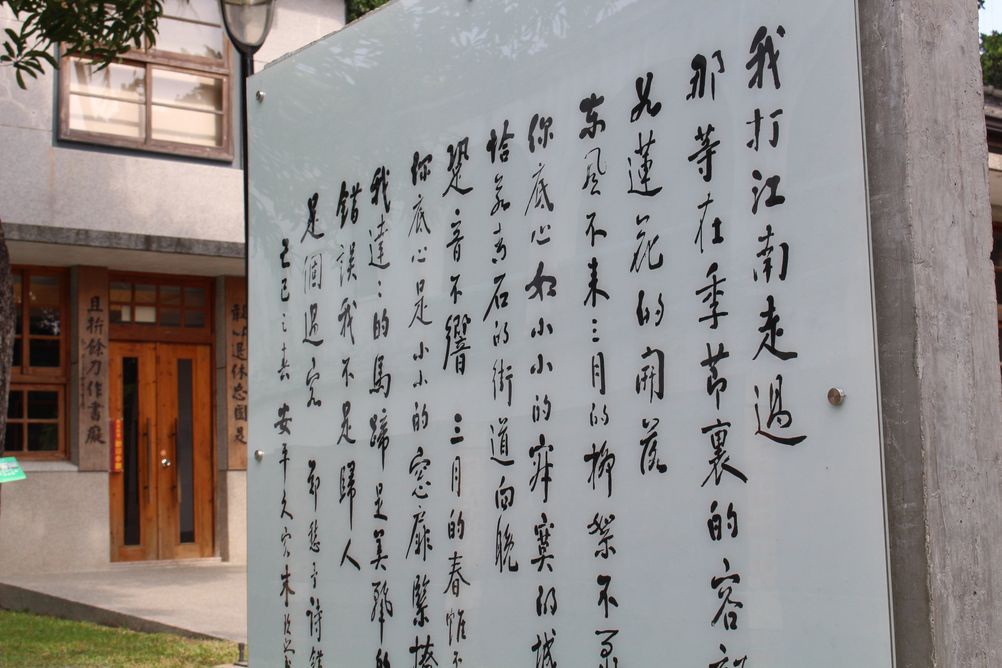 我打江南走過
那等在季節裏的容
如蓮花的開落
东風不来三月的柳絮不
你底心如小小的寂寞的城
恰若青石的街道向晚
跫音不響 三月的春帷不
你底心是小小的窓扉緊掩
我達:的馬蹄是美麗的
錯誤我不是歸人
是個過客 鄭愁予詩錯
己巳之春 安平久客朱玖
退休忘國是
且折餘刀作書癡